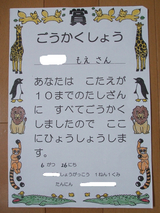 賞
ごうかくしょう
もえ さん
あなたは こたえが
10までのたしざん
に すべてごうかく
しましたので ここ
にひょうしょうしま
す。
6がつ 16にち
しょうがっこう 1ねん1くみ
たんにん